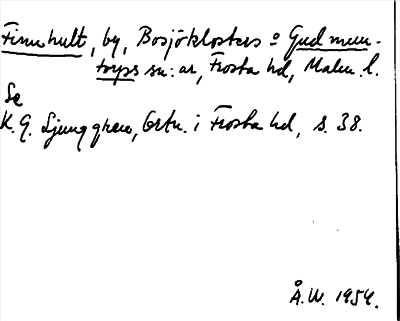 Finnhult, by, Bosjöklosters o Gudmun-
torps sn:ar, Frosta hd, Malm. l.
Se
K. G. Ljunggren, Ortn. i Frosta hd, s. 38.
Å.W. 1954.